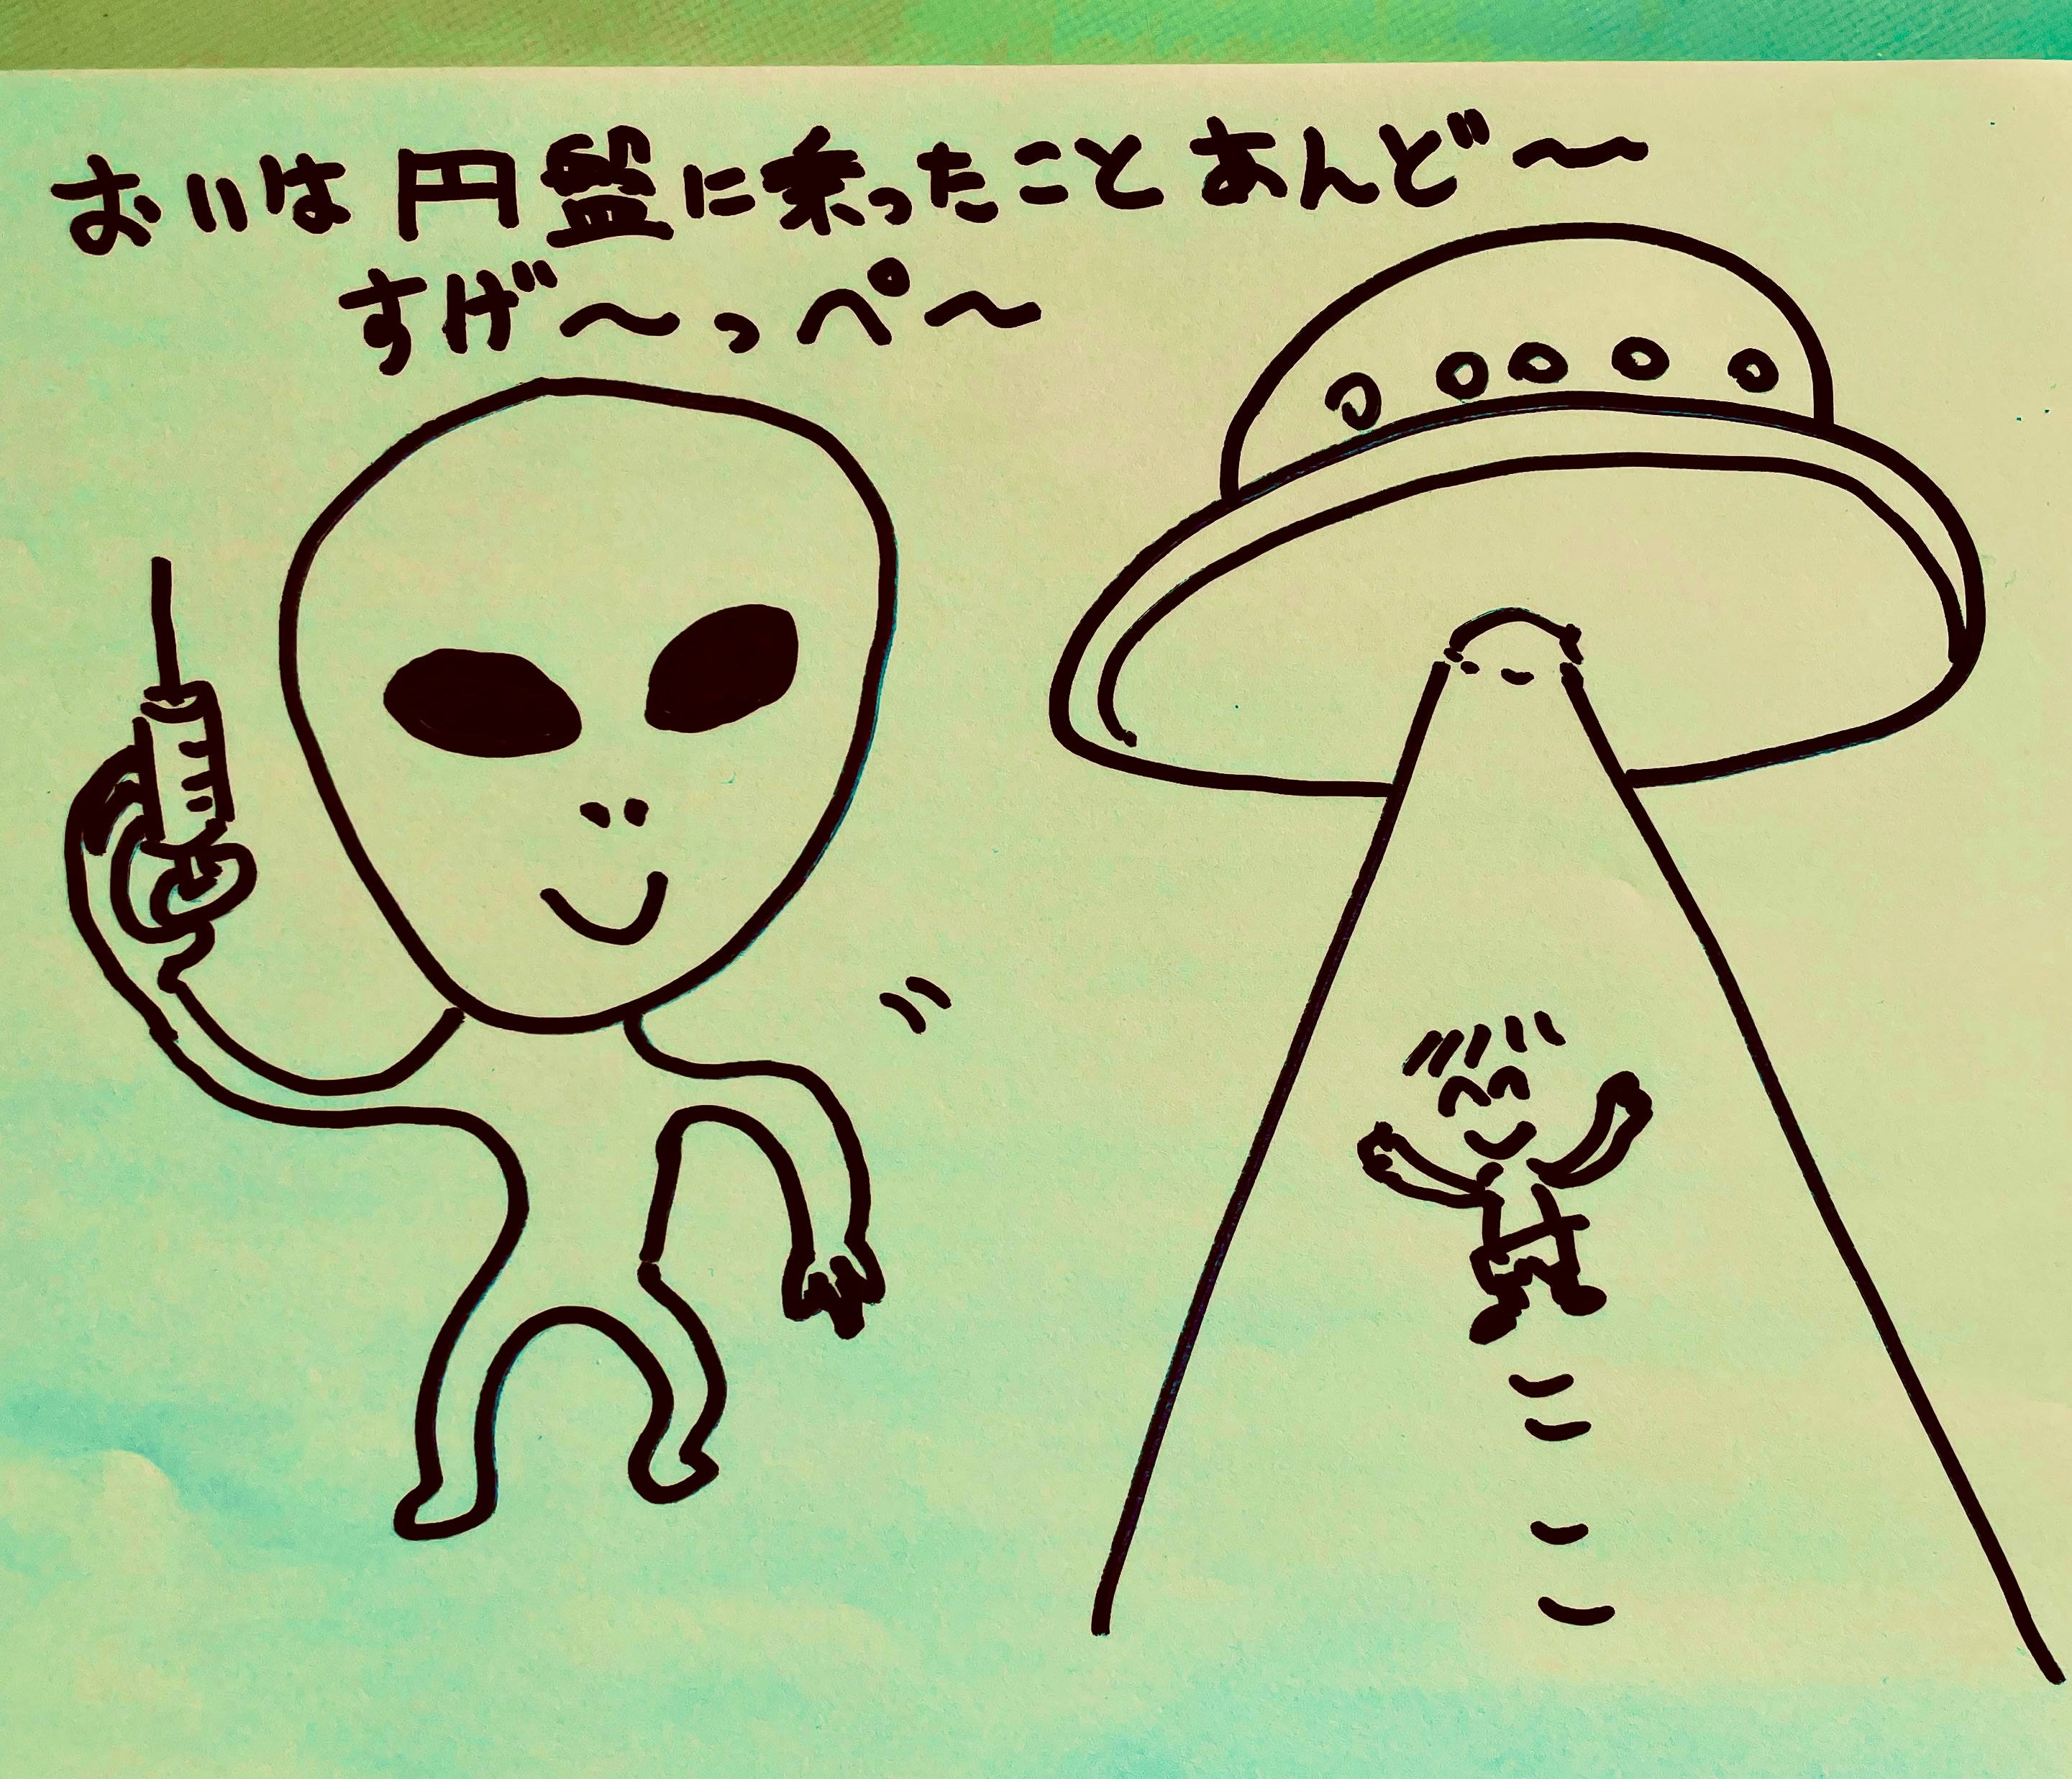 おいは円盤に乗ったことあんど〜
すげ〜っぺ〜